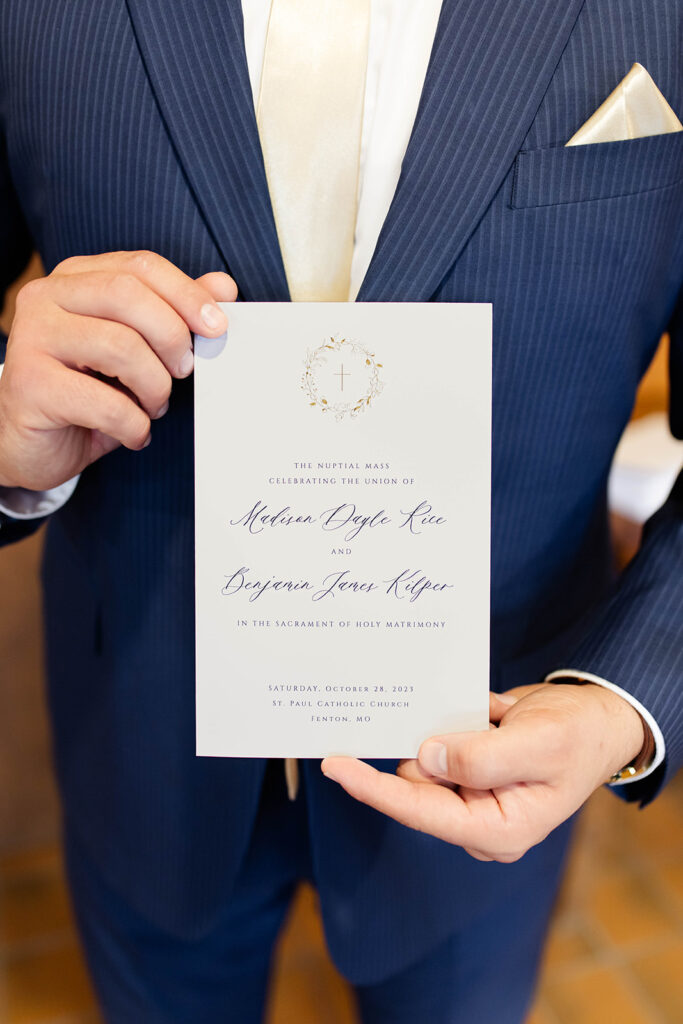 THE NUPTIAL MASS
CELEBRATING THE UNION OF
Madison Dayle Rice
AND
Benjamin James Kilper
IN THE SACRAMENT OF HOLY MATRIMONY
SATURDAY, OCTOBER 28, 2023
ST. PAUL CATHOLIC CHURCH
FENTON, MO